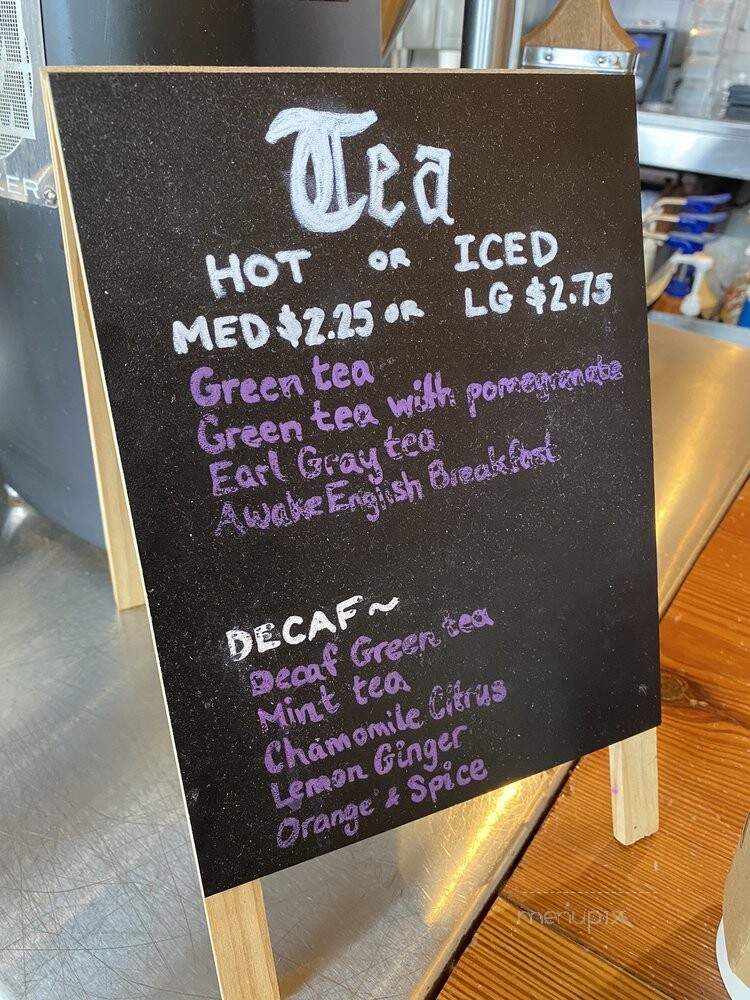 Tea
HOT OR ICED
MED $2.25 OR LG $2.75
Green tea
Green tea with pomegranate
Earl Gray tea
Awake English Breakfast
DECAF~
Decaf Green tea
Mint tea
Chamomile Citrus
Lemon Ginger
Orange & Spice
menupix